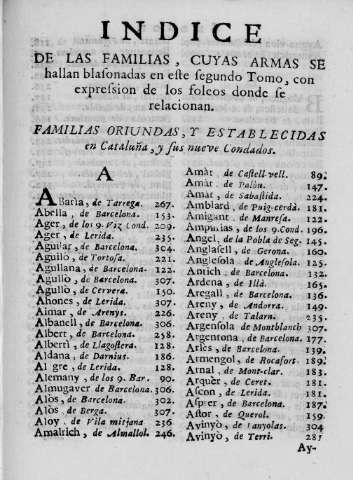 INDICE
DE LAS FAMILIAS, CUYAS ARMAS SE
hallan blasonadas en este segundo Tomo, con
expression de los foleos donde se
relacionan.
FAMILIAS ORIUNDAS, Y ESTABLECIDAS
en Cataluña, y sus nueve Condados.
A
ABaria, de Tarrega. 267.
Abella, de Barcelona. 153.
Ager, de los 9. Viz Cond. 209.
Ager, de Lerida. 235.
Aguilar, de Barcelona. 304.
Agullò, de Tortosa. 221.
Agullana, de Barcelona. 122.
Agullò, de Barcelona. 307.
Agullò, de Cervera. 150.
Ahones, de Lerida. 307.
Aimar, de Arenys. 226.
Albanell, de Barcelona. 306.
Albert, de Barcelona. 258.
Alberti, de Llagostera. 128.
Aldana, de Darnius. 186.
gre, de Lerida. 128.
Alemany, de los 9. Bar. 90.
Almugaver de Barcelona. 306.
Alòs, de Barcelona. 302.
Alòs, de Berga. 307.
Aloy, de Vila mitjana 236
Amalrich, de Almallol. 246.
Amàt, de Castell vell. 89.
Amàt, de Palòu. 147.
Amàt, de Sabastida. 224.
Amblard, de Puig-cerdà. 181.
Amigant, de Manresa. 122.
Ampurias, de los 9. Cond. 196.
Angel, de la Pobla de Seg. 145.
Anglasell, de Gerona. 160.
Anglesola, de Anglesola. 125.
Antich, de Barcelona. 132.
Ardena, de Illà. 165.
Aregall, de Barcelona. 136.
Areny, de Andorra. 149.
Areny, de Talarn. 235.
Argensola, de Montblanch 307.
Argentona, de Barcelona. 177.
Aries, de Barcelona. 139.
Armengol, de Rocafort. 189.
Arnal, de Mont-clar. 183.
Arquer, de Ceret. 181.
Ascon, de Lerida. 181.
Asprer, de Barcelona. 187.
Astor, de Querol. 159.
Avinyò, de Banyolas. 304
Avinyò, de Terri. 285
Ay-